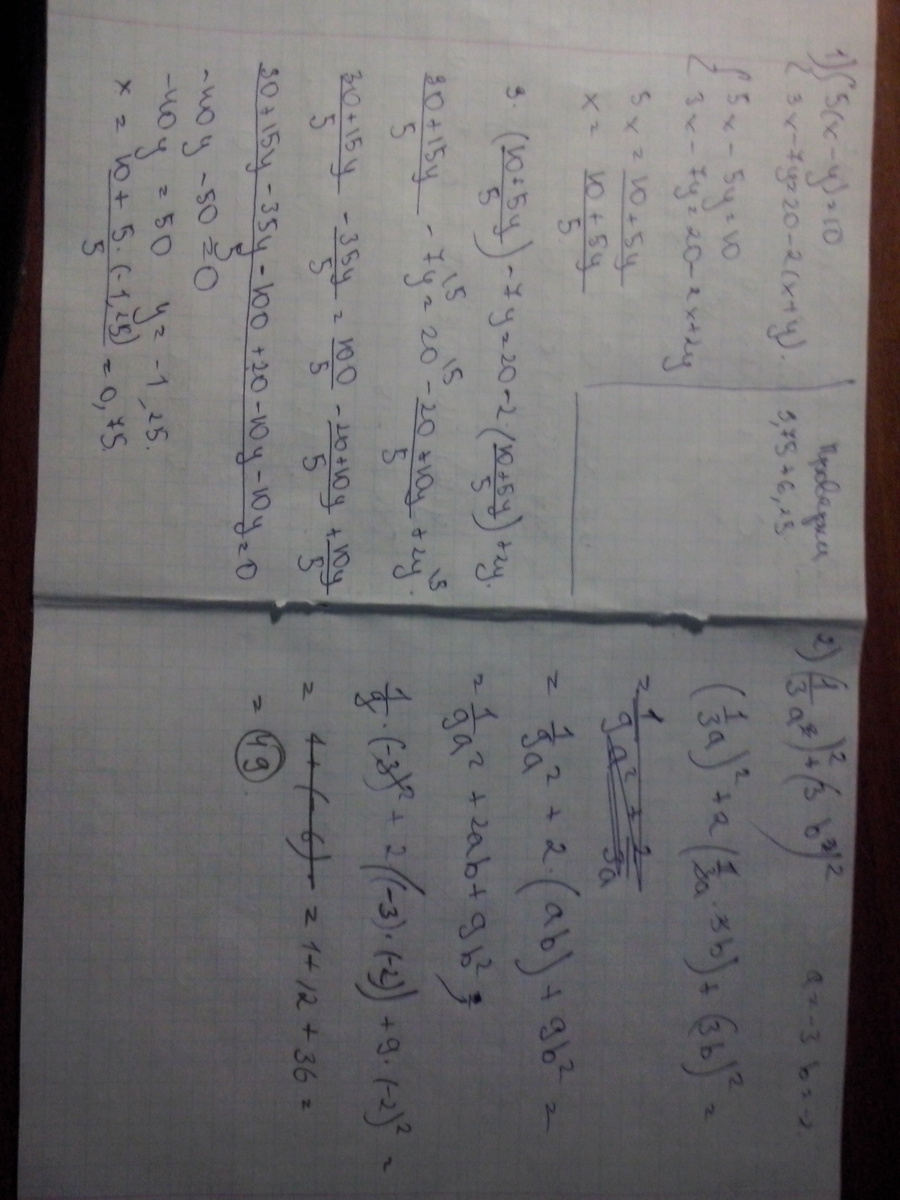 1) { 5(x-y)=10
{ 3x-7y=20-2(x+y).
{ 5x-5y=10
{ 3x-7y=20-2x+2y
5x=10+5y
x=\frac{10+5y}{5}
3·(\frac{10+5y}{5})-7y=20-2·(\frac{10+5y}{5})+2y.
\frac{30+15y}{5}-7y^{15}=20^{15}-\frac{20+10y}{5}+2y^{15}.
\frac{30+15y}{5}-\frac{35y}{5}=\frac{100}{5}-\frac{20+10y}{5}+\frac{10y}{5}
\frac{30+15y-35y-100+20-10y-10y=0}{5}
-40y-50=0
-40y=50 y=-1,25.
x=\frac{10+5·(-1,25)}{5}=0,75.
Проверка
3,75+6,25
2) (\frac{1}{3}a)²+(3b)² a=-3 b=-2
(\frac{1}{3}a)²+2(\frac{1}{3}a·3b)+(3b)²=
=\frac{1}{9}a²+\frac{2}{3a}
=\frac{1}{9}a²+2·(ab)+9b²=
=\frac{1}{9}a²+2ab+9b²;
\frac{1}{9}·(-3)²+2((-3)·(-2))+9·(-2)²=
= 1+(-6) =1+12+36=
=49